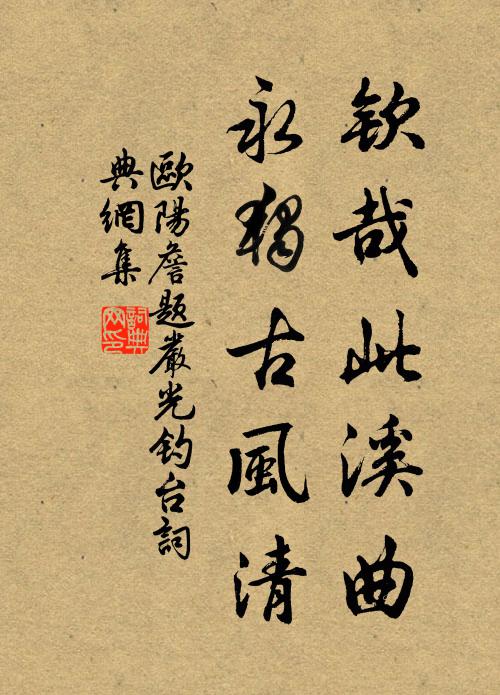 欽哉此溪曲
永獨古風清
歐陽詹题嚴光釣台詞
典網集
詞典
网印